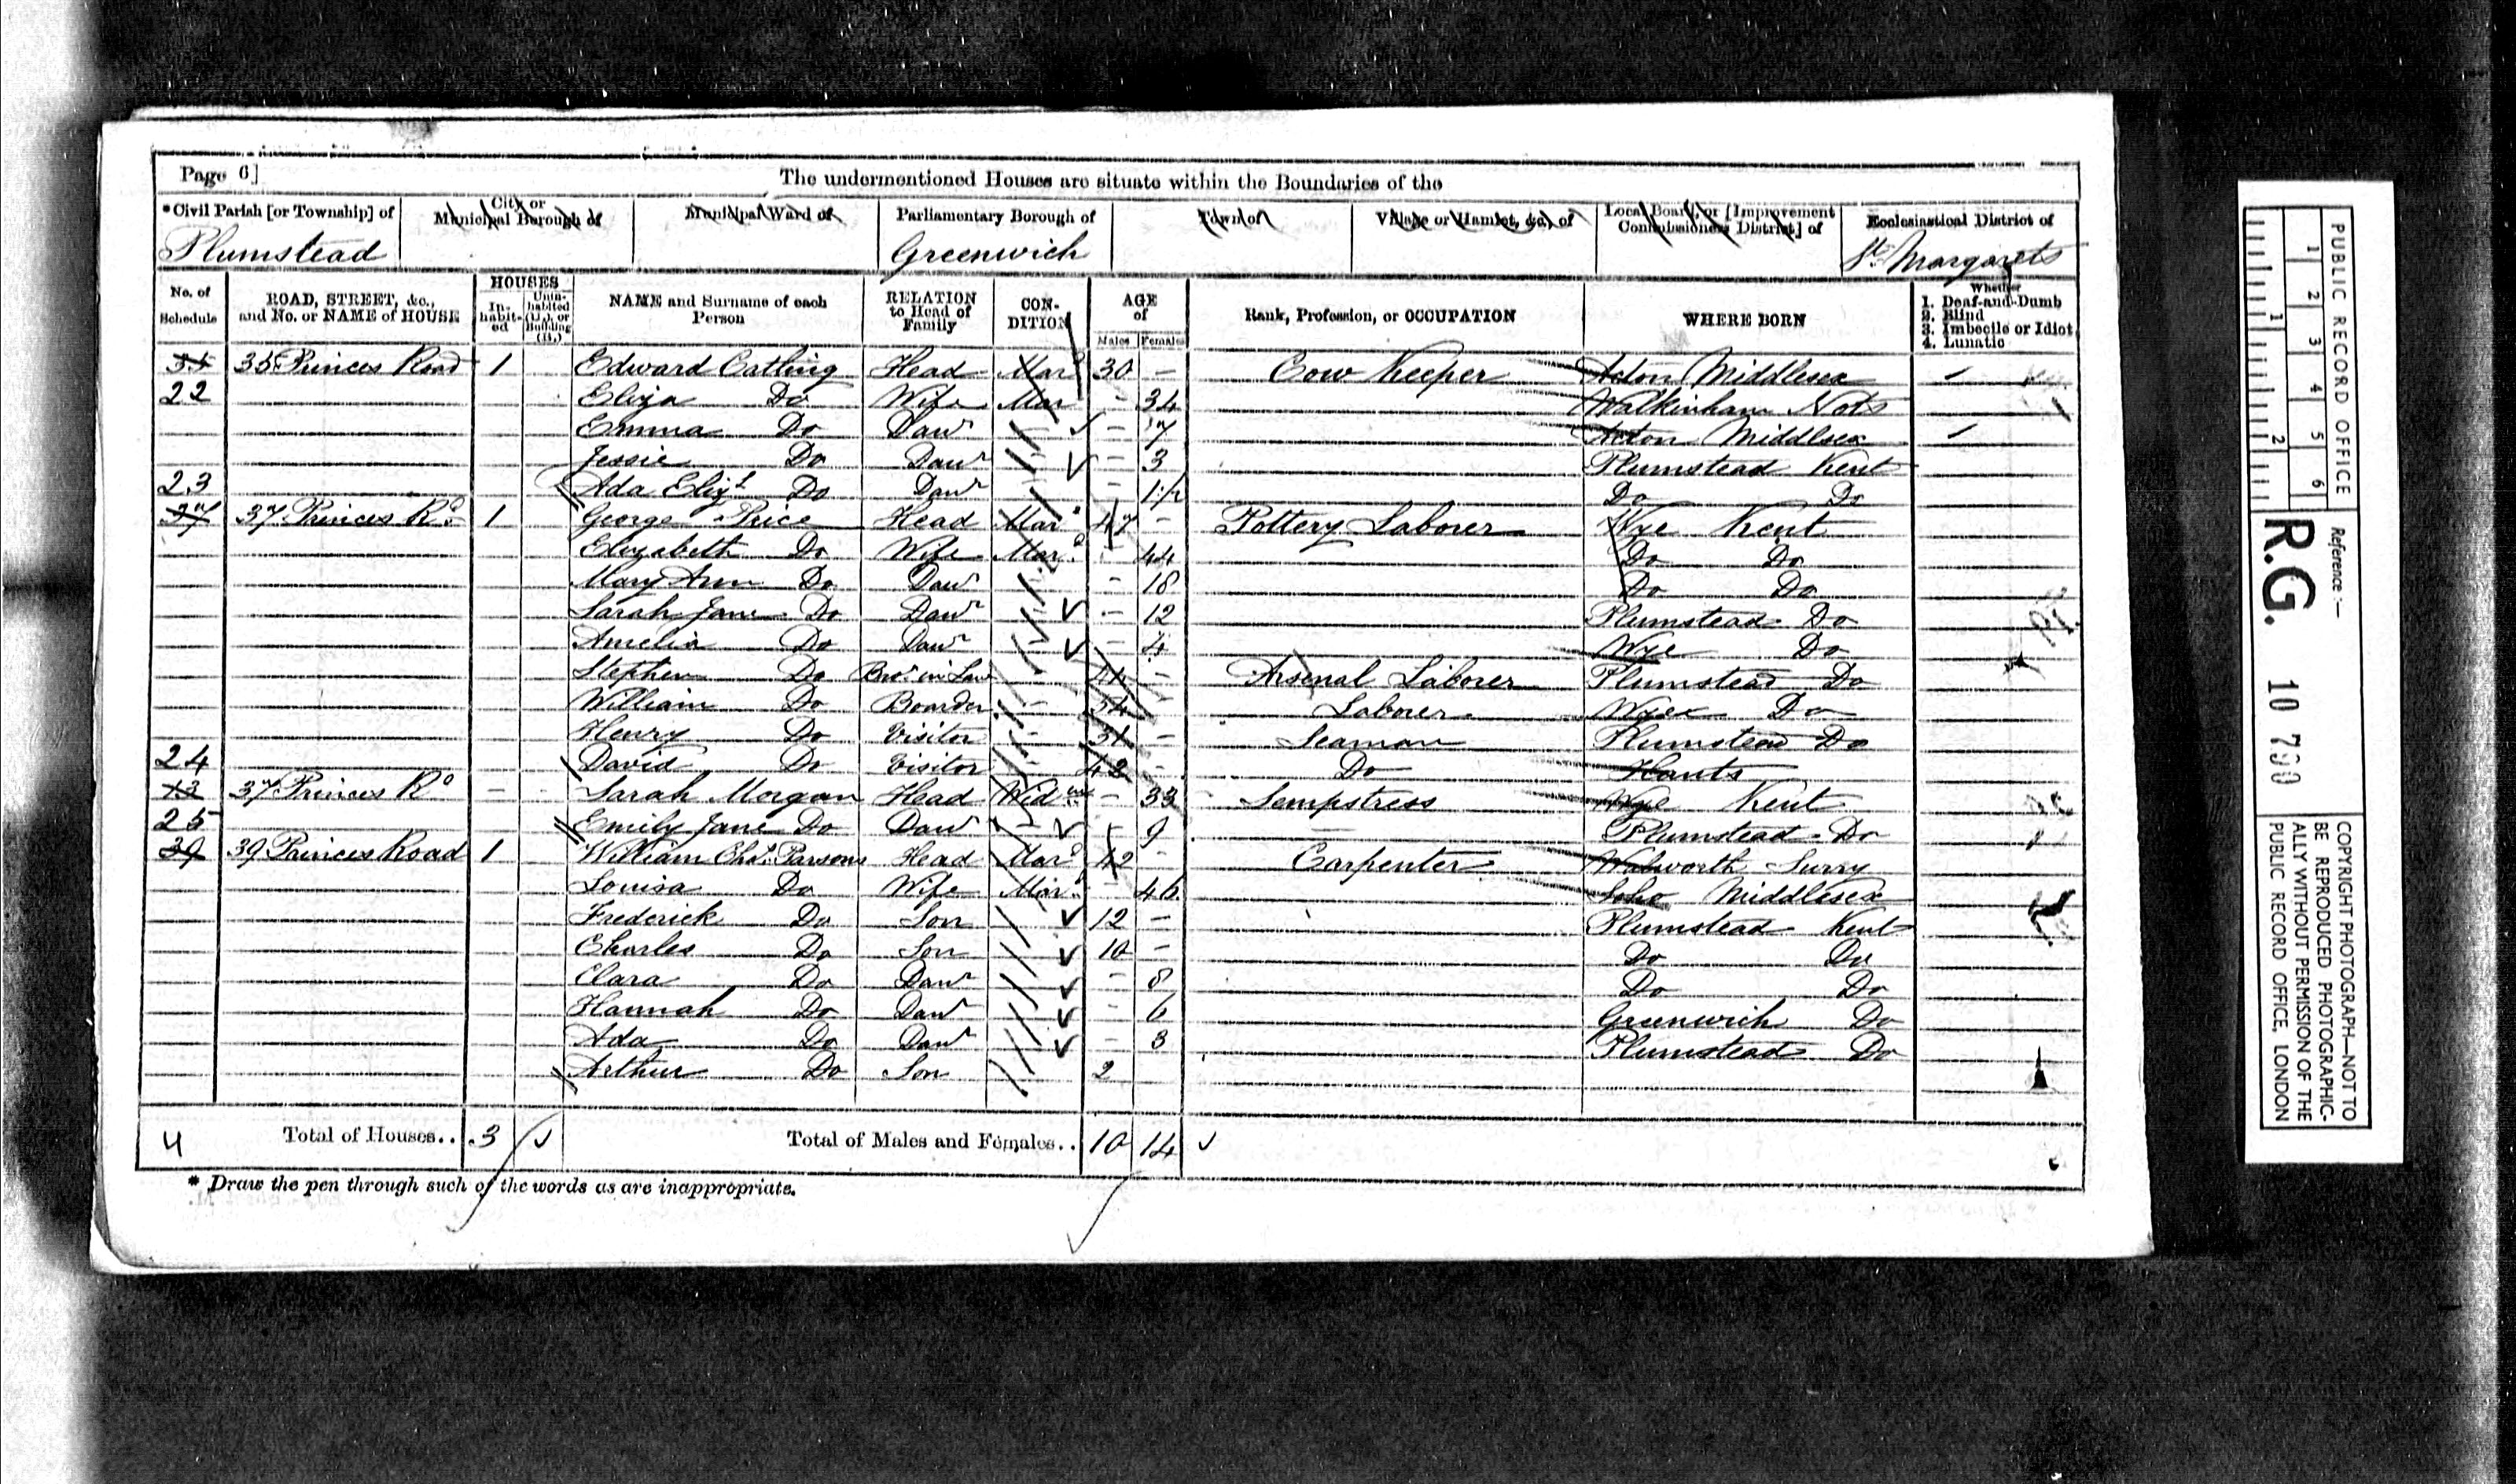 Page 6]
The undermentioned Houses are situate within the Boundaries of the
*Civil Parish [or Township] of
City or Municipal Borough of
Municipal Ward of
Parliamentary Borough of
Town of
Village or Hamlet, &c., of
Local Board, or [Improvement Commissioners District] of
Ecclesiastical District of
Plumstead
Greenwich
St. Margarets
No. of Schedule
ROAD, STREET, &c., and No. or NAME of HOUSE
HOUSES
In-habit-ed
Unin-habited (U.), or Building (B.)
NAME and Surname of each Person
RELATION to Head of Family
CON-DITION
AGE of
Males Females
Rank, Profession, or OCCUPATION
WHERE BORN
Whether
1. Deaf-and-Dumb
2. Blind
3. Imbecile or Idiot
4. Lunatic
35 Princes Road 1 Edward Catling Head Mard 30 - Cow Keeper Acton Middlesex
22 Eliza Do Wife Mar - 34 Notts
Emma Do Dawr - 7 Acton Middlsex
Jessie Do Dawr - 3 Plumstead Kent
23 Ada Elizth Do Dawr - Do Do
37 37 Princes Rd 1 George Price Head Mard 47 - Pottery Laborer Wye Kent
Elizabeth Do Wife Mard - 44 Do Do
Mary Ann Do Dawr - 18 Do Do
Sarah Jane Do Dawr - 12 Plumstead Do
Amelia Do Dawr - 4 Wye Do
Stephen Do Bror in Law - 44 - Arsenal Laborer Plumstead Do
William Do Boarder - 34 - Laborer Wye Do
Henry Do Visitor - 31 - Seaman Plumstead Do
24 David Do Visitor 42 - Do Hants
37 Princes Rd - Sarah Morgan Head Widow - 33 Sempstress Wye Kent
25 Emily Jane Do Dawr - 9 Plumstead Do
39 39 Princes Road 1 William Chas. Parsons Head Mard 42 - Carpenter Walworth Surry
Louisa Do Wife Mard - 46 Soho Middlesex
Frederick Do Son 12 - Plumstead Kent
Charles Do Son 10 - Do Do
Clara Do Dawr - 8 Do Do
Hannah Do Dawr - 6 Greenwich Do
Ada Do Dawr - 3 Plumstead Do
Arthur Do Son 2
4 Total of Houses.. 3
Total of Males and Females.. 10 14
* Draw the pen through such of the words as are inappropriate.
PUBLIC RECORD OFFICE
1 2 3 4 5 6
1 2
Reference:-
R.G. 10 790
COPYRIGHT PHOTOGRAPH—NOT TO
BE REPRODUCED PHOTOGRAPHIC-
ALLY WITHOUT PERMISSION OF THE
PUBLIC RECORD OFFICE, LONDON